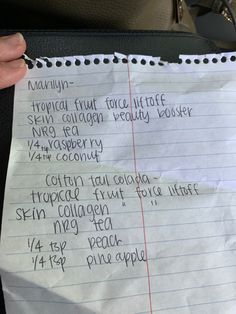 Marilyn-
tropical fruit force liftoff
skin collagen beauty booster
NRG tea
1/4 tsp raspberry
1/4 tsp coconut
Cotton tail colada-
tropical fruit force liftoff
skin collagen " "
nrg tea
1/4 tsp peach
1/4 tsp pineapple